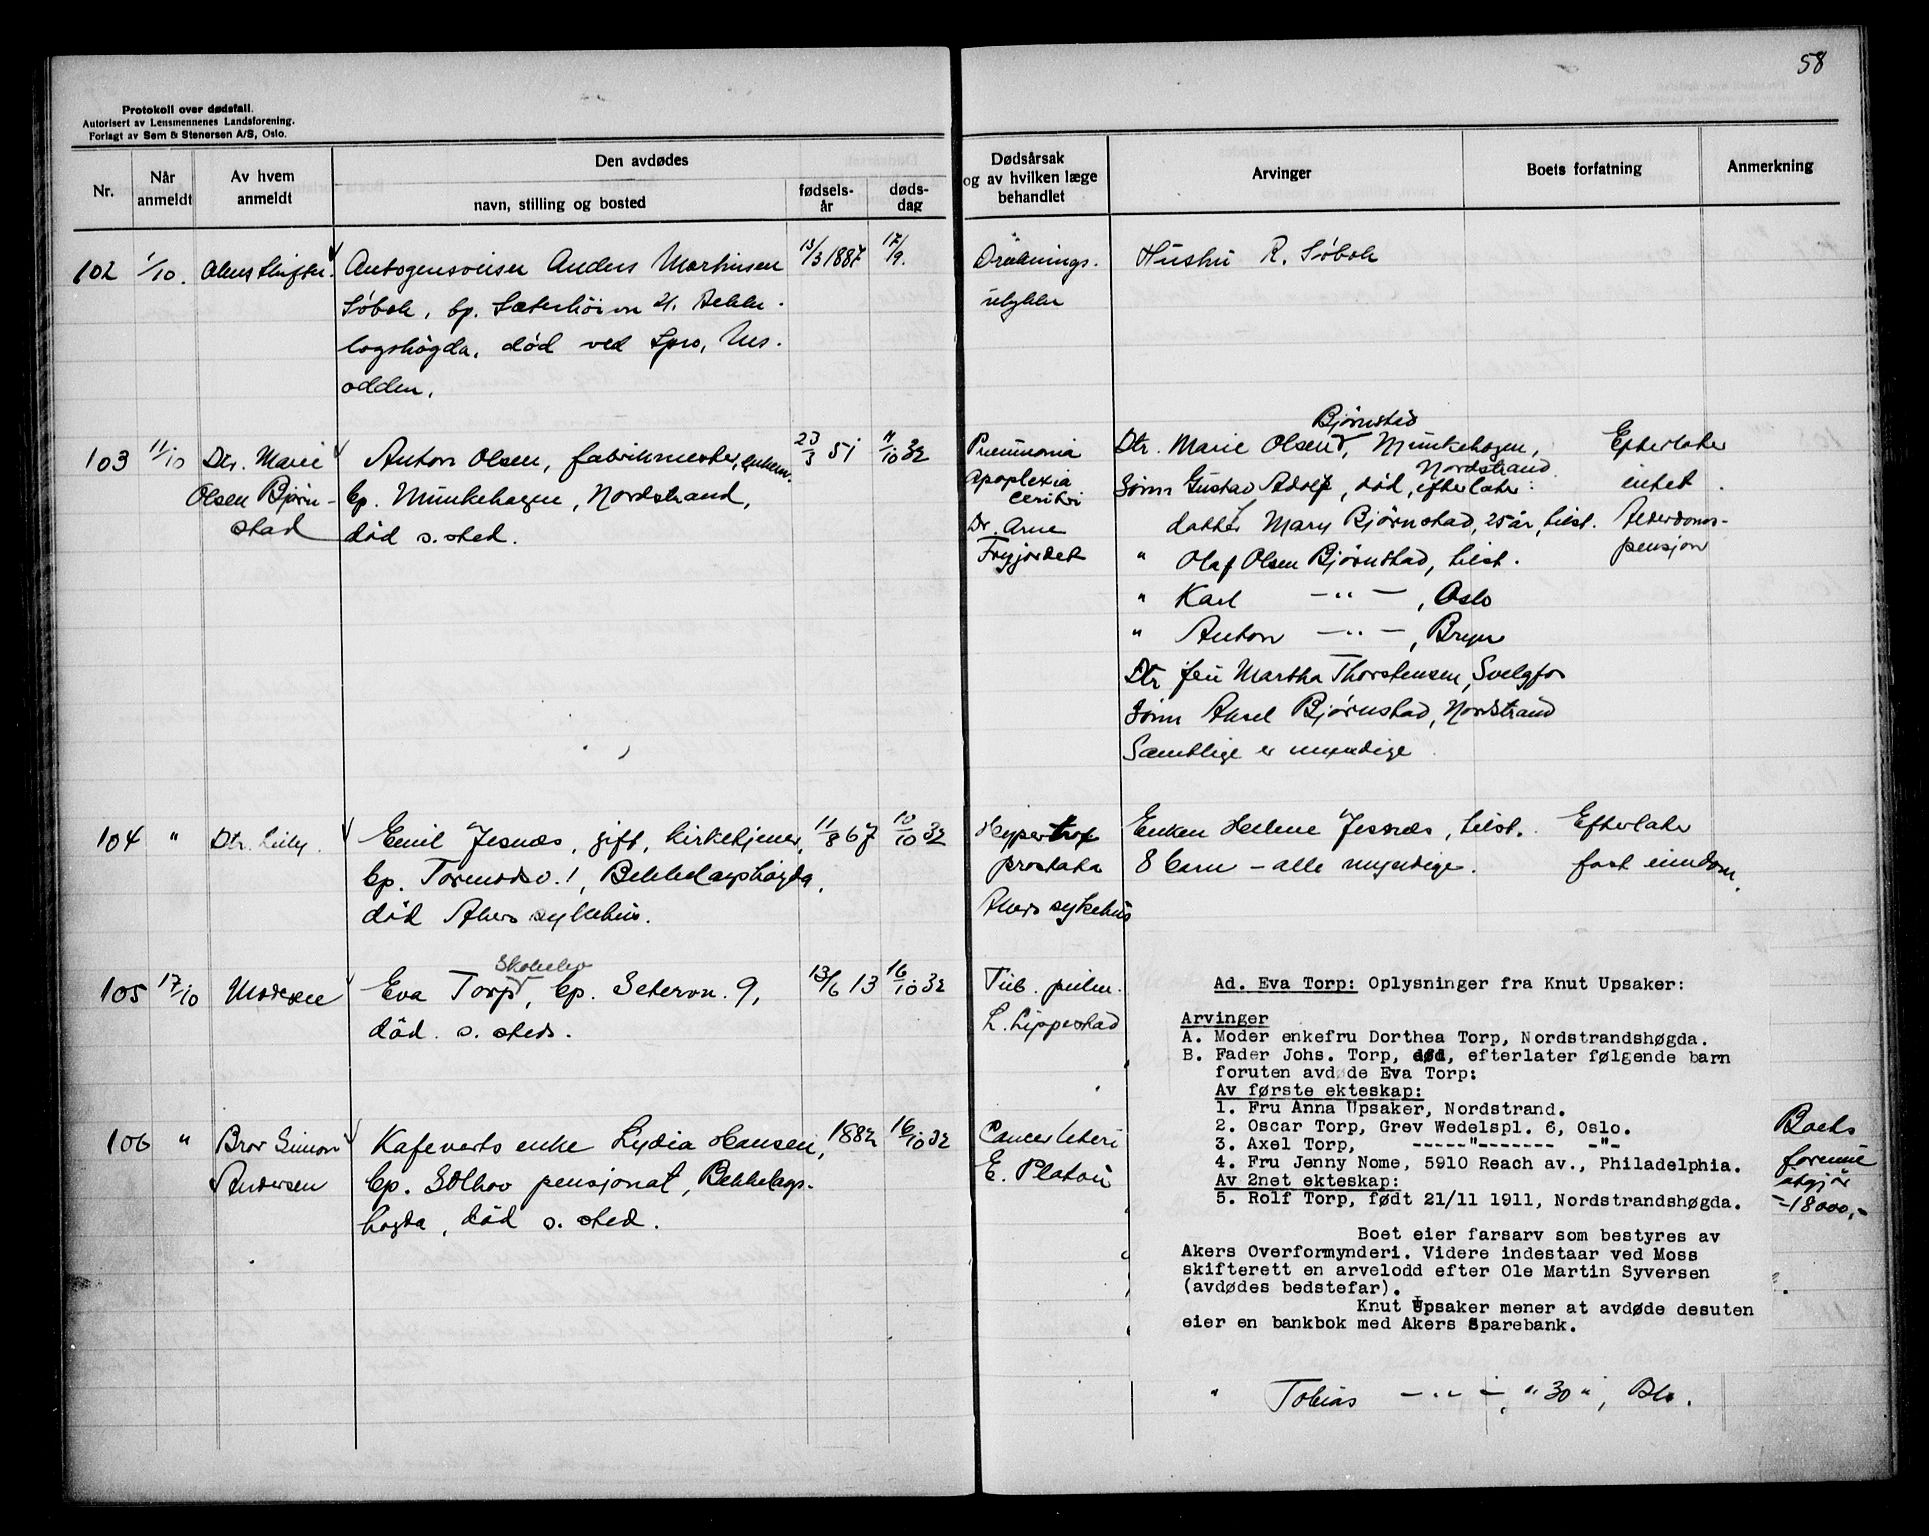 58
Protokoll over dødsfall.
Autorisert av Lensmennenes Landsforening.
Forlagt av Sem & Stenersen A/S, Oslo.
Nr.
Når anmeldt
Av hvem anmeldt
Den avdødes
navn, stilling og bosted
fødsels-år
døds-dag
Dødsårsak
og av hvilken læge
behandlet
Arvinger
Boets forfatning
Anmerkning
102 1/10. Anders Martinsen 13/3 1887 17/9. Hustru R. Søbok
Søbok, bp. Sæterhöivn 21. Bekke-
lagshögda, død ved Spro, Nes-
odden.
103 11/10 Dtr. Marie Anton Olsen, fabrikmester, enkem. 23/3 51 11/10 32 Pneumonia Dtr. Marie Olsen Bjørnstad, Munkehagen, Efterlater
Nordstrand
Olsen Bjørn- bp. Munkehagen, Nordstrand, Apoplexia cerebri Sønn Gustav Adolf, død, efterlater: intet.
stad død s. sted. Dr. Arne datter Mary Bjørnstad, 25 år, tilst. Alderdoms-
" Olaf Olsen Bjørnstad, tilst. pensjon
" Karl —"— , Oslo
" Anton —"— , Bryn
Dtr fru Martha Thorstensen, Svelgfos
Sønn Aksel Bjørnstad, Nordstrand
Samtlige er myndige
104 " Dtr. Lilly. Emil Jesnæs, gift, kirketjener, 11/8 67 10/10 32 Hypertrof Enken Helene Jesnæs, tilst. Efterlater
bp. Tormodsv. 1, Bekkelagshögda, prostata 8 barn – alle myndige. fast eiendom.
död Akers sykehus. Akers sykehus
105 17/10 Moderen Eva Torp, Skoleelev bp. Setervn. 9, 13/6 13 16/10 32 Tub. pulm.
död. s. sted. L. Lippestad
Ad. Eva Torp: Oplysninger fra Knut Upsaker:
Arvinger
A. Moder enkefru Dorthea Torp, Nordstrandshøgda.
B. Fader Johs. Torp, død, efterlater følgende barn
foruten avdøde Eva Torp:
Av første ekteskap:
1. Fru Anna Upsaker, Nordstrand.
2. Oscar Torp, Grev Wedelspl. 6, Oslo.
3. Axel Torp, -----"------- -"-
4. Fru Jenny Nome, 5910 Reach av., Philadelphia.
Av 2net ekteskap:
5. Rolf Torp, født 21/11 1911, Nordstrandshøgda.
Boet eier farsarv som bestyres av
Akers Overformynderi. Videre indestaar ved Moss
skifterett en arvelodd efter Ole Martin Syversen
(avdødes bedstefar).
Knut Upsaker mener at avdøde desuten
eier en bankbok med Akers Sparebank.
106 " Bror Simon Kafeverts enke Lydia Hansen, 1882 16/10 32 Cancer Uteri Boets
Andersen bp. Solhov pensjonat, Bekkelags- E. Platou formue
högda, død s. sted. utgjör
-18000,-
" Tobias —"— , "30", Bls.